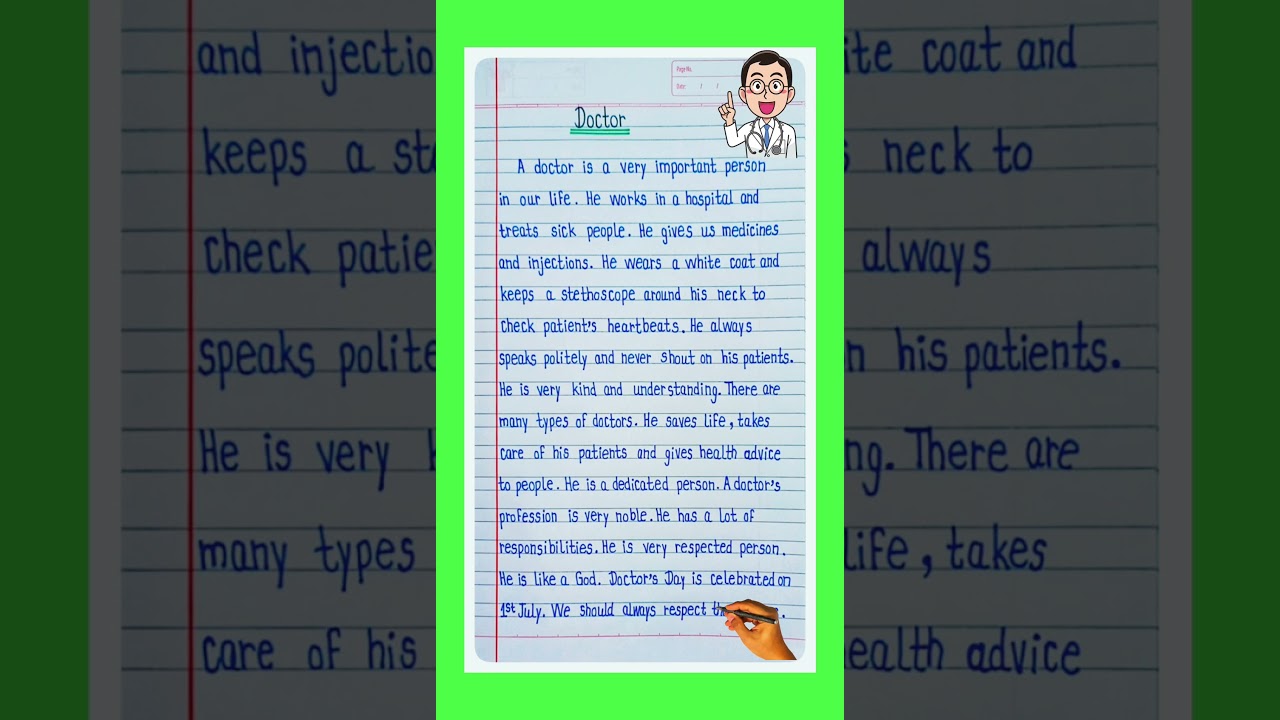 Page No.
Date: / /
Doctor
A doctor is a very important person
in our life. He works in a hospital and
treats sick people. He gives us medicines
and injections. He wears a white coat and
keeps a stethoscope around his neck to
check patient's heartbeats. He always
speaks politely and never shout on his patients.
He is very kind and understanding. There are
many types of doctors. He saves life, takes
care of his patients and gives health advice
to people. He is a dedicated person. A doctor's
profession is very noble. He has a lot of
responsibilities. He is very respected person.
He is like a God. Doctor's Day is celebrated on
1st July. We should always respect